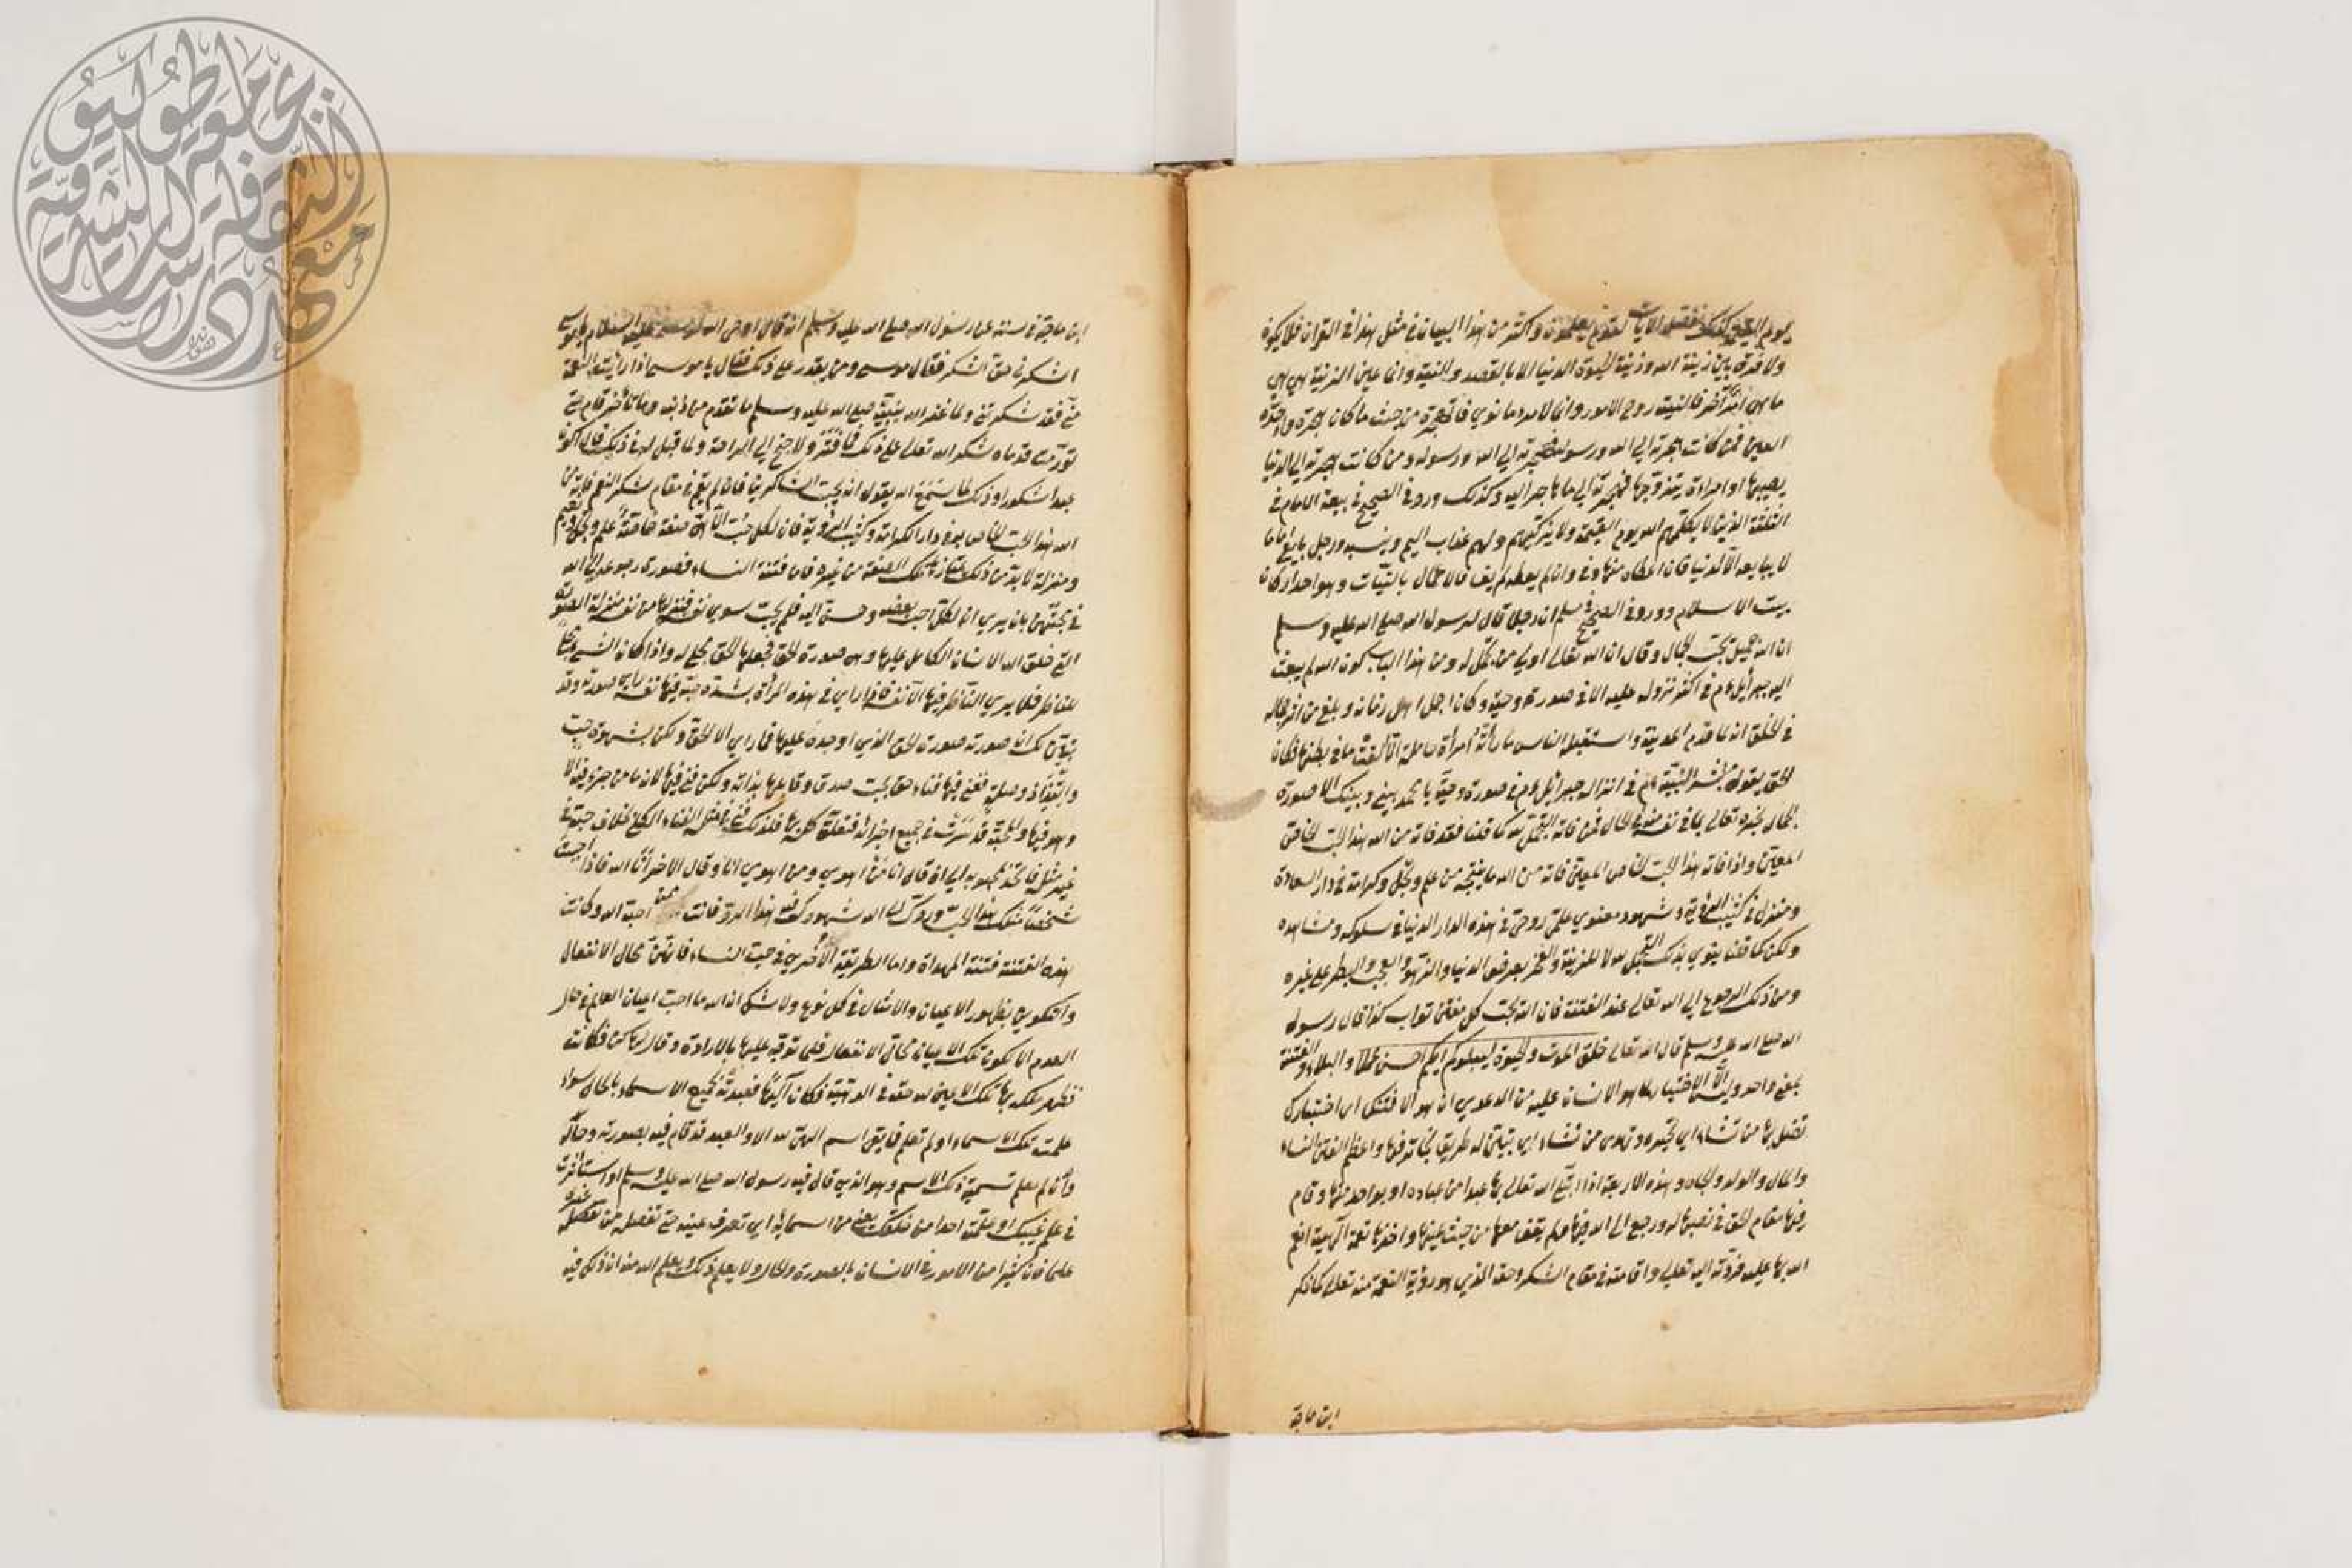 يوم القيمة كذلك نفصل الآيات لقوم يعلمون واكثر من هذا البيان في مثل هذا في القرآن فلا يكون
ولا فرق بين زينة الله وزينة الحيوة الدنيا الا بالقصد والنية وانما عين الزينة هي هي
ما هي امر آخر فالنية روح الامور وانما لامرء ما نوى فالهجرة من حيث ما كانت هجرة واحدة
العين فمن كانت هجرته الى الله ورسوله فهجرته الى الله ورسوله ومن كانت هجرته الى الدنيا
يصيبها او امراة يتزوجها فهجرته الى ما هاجر اليه وكذلك ورد في الصحيح في بيعة الامام في
الثلثة الذين لا يكلمهم الله يوم القيمة ولا يزكيهم ولهم عذاب اليم وفيه ورجل بايع اماما
لا يبايعه الا لدنيا فان اعطاه منها وفى وان لم يعطه لم يف فالاعمال بالنيات وهو احد اركان
بيت الاسلام وورد في الصحيح في مسلم ان رجلا قال لرسول الله صلى الله عليه وسلم
ان الله جميل يحب الجمال وقال ان الله تعالى اولى من تجمل له ومن هذا الباب كون الله لم يبعث
اليه جبرائيل عم في اكثر نزوله عليه الا في صورة دحية وكان اجمل اهل زمانه وبلغ من اثر جماله
في الخلق انه لما قدم المدينة واستقبله الناس ما رأته امرأة حاملة الا القت ما في بطنها فكان
الحق يقول يبشر النبيه عم في انزاله جبرائيل عم في صورة دحية يا محمد بيني وبينك الا صورة
الجمال يخبره تعالى بما في نفسه من الجمال فمن فاته التجمل لله كما قلنا فقد فاته من الله هذا الحب الخاص
المعين واذا فاته هذا الحب الخاص المعين فاته من الله ما ينتجه من علم وتجل وكرامة في دار السعادة
ومنزل في كثيب الرؤية وشهود معنوي علمي روحي في هذه الدار الدنيا في سلوكه ومشاهده
ولكن كما قلنا ينوي بذلك التجمل لله لا للزينة والفخر بعرض الدنيا والزهو والعجب والبطر على غيره
ومن ذلك الرجوع الى الله تعالى عند الفتنة فان الله يحب كل مفتن تواب كذا قال رسول
الله صلى الله عليه وسلم قال الله تعالى خلق الموت والحيوة ليبلوكم ايكم احسن عملا والبلاء والفتنة
بمعنى واحد وليس الا الاختبار لما هو الانسان عليه من الدعوى ان هي الا فتنتك اي اختبارك
تضل بها من تشاء اي تحيره وتهدي من تشاء اي تبين له طريق نجاته فيها واعظم الفتن النساء
والمال والولد والجاه وهذه الاربعة اذا ابتلى الله تعالى بها عبدا من عباده او بواحد منها وقام
فيها مقام الحق في نصبها له ورجع الى الله فيها ولم يقف معها من حيث عينها واخذها نعمة الهية انعم
الله بها عليه فردته اليه تعالى واقامته في مقام الشكر وحقه الذي هو رؤية النعمة منه تعالى كما ذكر
ابن ماجة
ابن ماجة في سننه عن رسول الله صلى الله عليه وسلم انه قال اوحى الله لموسى عليه السلام يا موسى
اشكرني حق الشكر فقال موسى ومن يقدر على ذلك فقال يا موسى اذا رايت النعمة
مني فقد شكرتني ولما غفر الله لنبيه صلى الله عليه وسلم ما تقدم من ذنبه وما تأخر قام حتى
تورمت قدماه شكرا لله تعالى على ذلك فما فتر ولا جنح الى الراحة ولما قيل له في ذلك قال افلا اكون
عبدا شكورا وذلك لما سمع الله يقول ان الله يحب الشاكرين فان لم يقم في مقام شكر المنعم فاته من
الله هذا الحب الخاص به في دار الكرامة وكثيب الرؤية فان لكل حب الهي صفة خاصة وعلم وتجل ونعيم
ومنزلة لا بد من ذلك يمتاز بتلك الصفة من غيره فان فتنة النساء فصورة رجوعه الى الله
في محبتهن بان يرى ان الكل احب بعضه وحن اليه فلم يحب سوى نفسه فنزلها من نفسه منزلة الصورة
التي خلق الله الانسان الكامل عليها وهي صورة الحق فجعلها الحق مجلى له واذا كان الشيء مجلى
للناظر فلا يرى الناظر فيها الا نفسه فاذا راى في هذه المرأة بشدة حبه فيها نفسه راى صورته وقد
تبين لك ان صورته صورة الحق الذي اوجده عليها فما راى الا الحق ولكن بشهوة حب
والتذاذ وصلة ففني فيها فناء حق بحب صدق وقابلها بذاته ولكن فني فيها لانه ما من جزء فيه الا
وهو فيها والمحبة قد سرت في جميع اجزائه فتعلق كله بها فلذلك فني في مثله الفناء الكلي بخلاف حبه في
غير مثله فاتحد بمحبوبه الى ان قال انا من اهوى ومن اهوى انا وقال الاخر انا الله فاذا احببت
شخصا مثلك هذا الحب وردك الى الله شهودك فيه هذا الرد فانت ممن احبه الله وكانت
هذه الفتنة فتنة المهداة واما الطريقة الاخرى في حب النساء فانهن محال الانفعال
والتكوين بظهور الاعيان والامثال في كل نوع ولا شك ان الله ما احب اعيان العالم في حال
العدم الا لكون تلك الاعيان محال الانفعال فلما توجه عليها بالارادة وقال لها كن فكانت
فظهر ملكه بها تلك الاعيان له حقه في الوهيته فكان آلها فعبدته جميع الاسماء بالحال سواء
علمت تلك الاسماء او لم تعلم فما بقي اسم الهي لله الا والعبد قد قام فيه بصورته وحاله
وان لم يعلم تسمية ذلك الاسم وهو الذي قال فيه رسول الله صلى الله عليه وسلم او استأثرت
في علم غيبك او علمته احدا من خلقك يعني من اسمائه اي تعرف عينه حتى تفصله من غيره
علما فان كثيرا من الامور في الانسان بالصورة والحال ولا يعلم ذلك ويعلم الله منه ان ذلك فيه